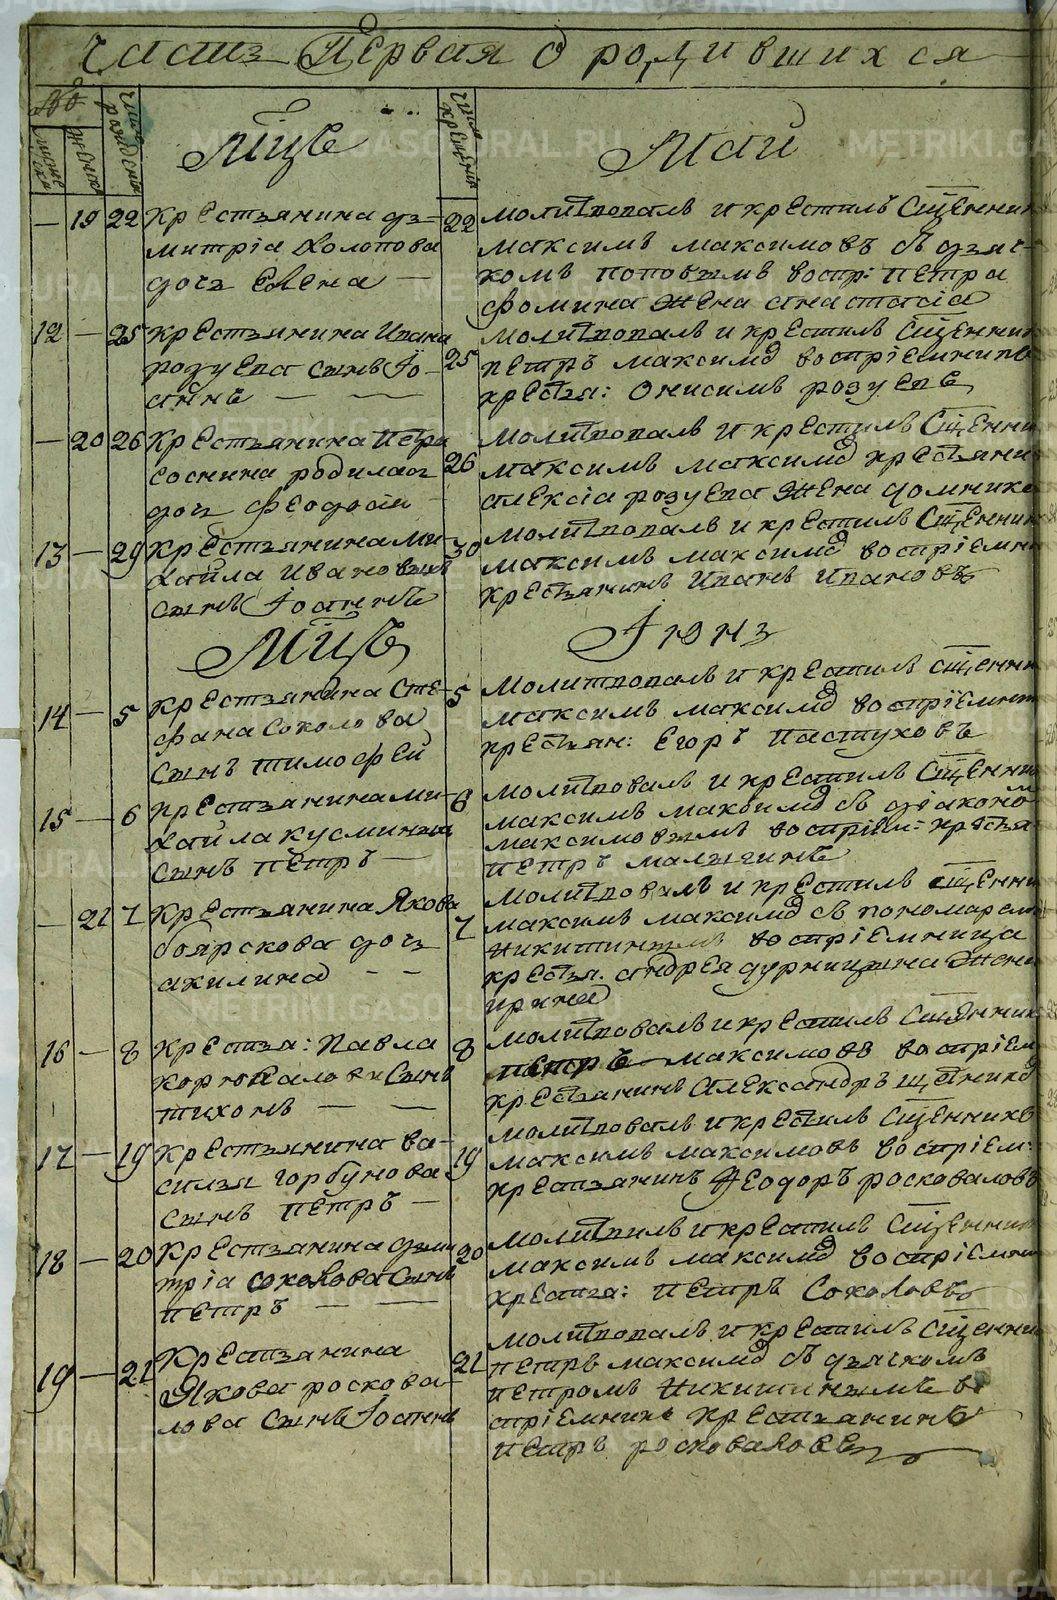 Часть Первая О родившихся
№
мужескъ
женскъ
число рождения
число крещения
Мцъ Маи
— 19 22 Крестьянина дъ=
митріа Холопова
дочь Елена —
22 молитвовалъ и крестилъ Сщенник
максимъ максимовъ съ дьяч-
комъ поповымъ воспрі: петра
фомина жена анастасіа
12 — 25 крестьянина Ивана
розуева сынъ Іо-
аннъ — —
25 молитвовалъ и крестилъ Сщенник
петръ максимо воспріемникъ
крестья: онисимъ розуевъ
— 20 26 Крестьянина Петра
соснина родилась
дочь феодосіи
26 молитвовалъ и крестилъ Сщенни
максимъ максимо крестьяни
алексіа розуева жена домника
13 — 29 Крестьянина Ми-
хаила Ивановыхъ
сынъ Іоаннъ
30 молитвовалъ и крестилъ Сщенник
максимъ максимо воспріемни
крестьянинъ Иванъ Ивановъ
Мцъ Іюнь
14 — 5 крестьянина Сте-
фана Соколова
сынъ тимофей
5 молитвовалъ и крестилъ Сщенни
максимъ максимо воспріемни
крестьян: Егоръ Пастуховъ
15 — 6 крестьянина ми-
хаила кусминых
сынъ петръ —
6 молитвовалъ и крестилъ Сщенни
максимъ максимо съ діаконо
максимовымъ воспріем: крестья
петръ малыгинъ
— 21 7 Крестьянина Якова
боярскова дочь
акилина — —
7 молитвовалъ и крестилъ Сщенни
максимъ максимо съ пономарем
Никитинымъ воспріемница
крестья. андрея дурницына жена
ирина
16 — 8 крестья: Павла
корюкалова Сынъ
тихонъ — —
8 молитвовалъ и крестилъ Сщенник
петръ максимовъ воспріем
крестьянинъ Александръ
17 — 19 крестьянина ва-
силья горбунова
сынъ петръ —
19 молитвовалъ и крестилъ Сщенникъ
максимъ максимовъ воспріем:
крестьянинъ Феодоръ росковаловъ
18 — 20 Крестьянина дми
тріа соколова Сынъ
петръ — —
20 молитвилъ и крестилъ Сщенник
максимъ максимо воспріемни
крестья: петръ Соколовъ
19 — 21 Крестьянина
Якова роскова-
лова Сынъ Іоаннъ
21 молитвовалъ и крестилъ Сщенни
петръ максимо съ дьячкомъ
петромъ Никитинымъ во
спріемникъ крестьянинъ
петръ росковаловъ